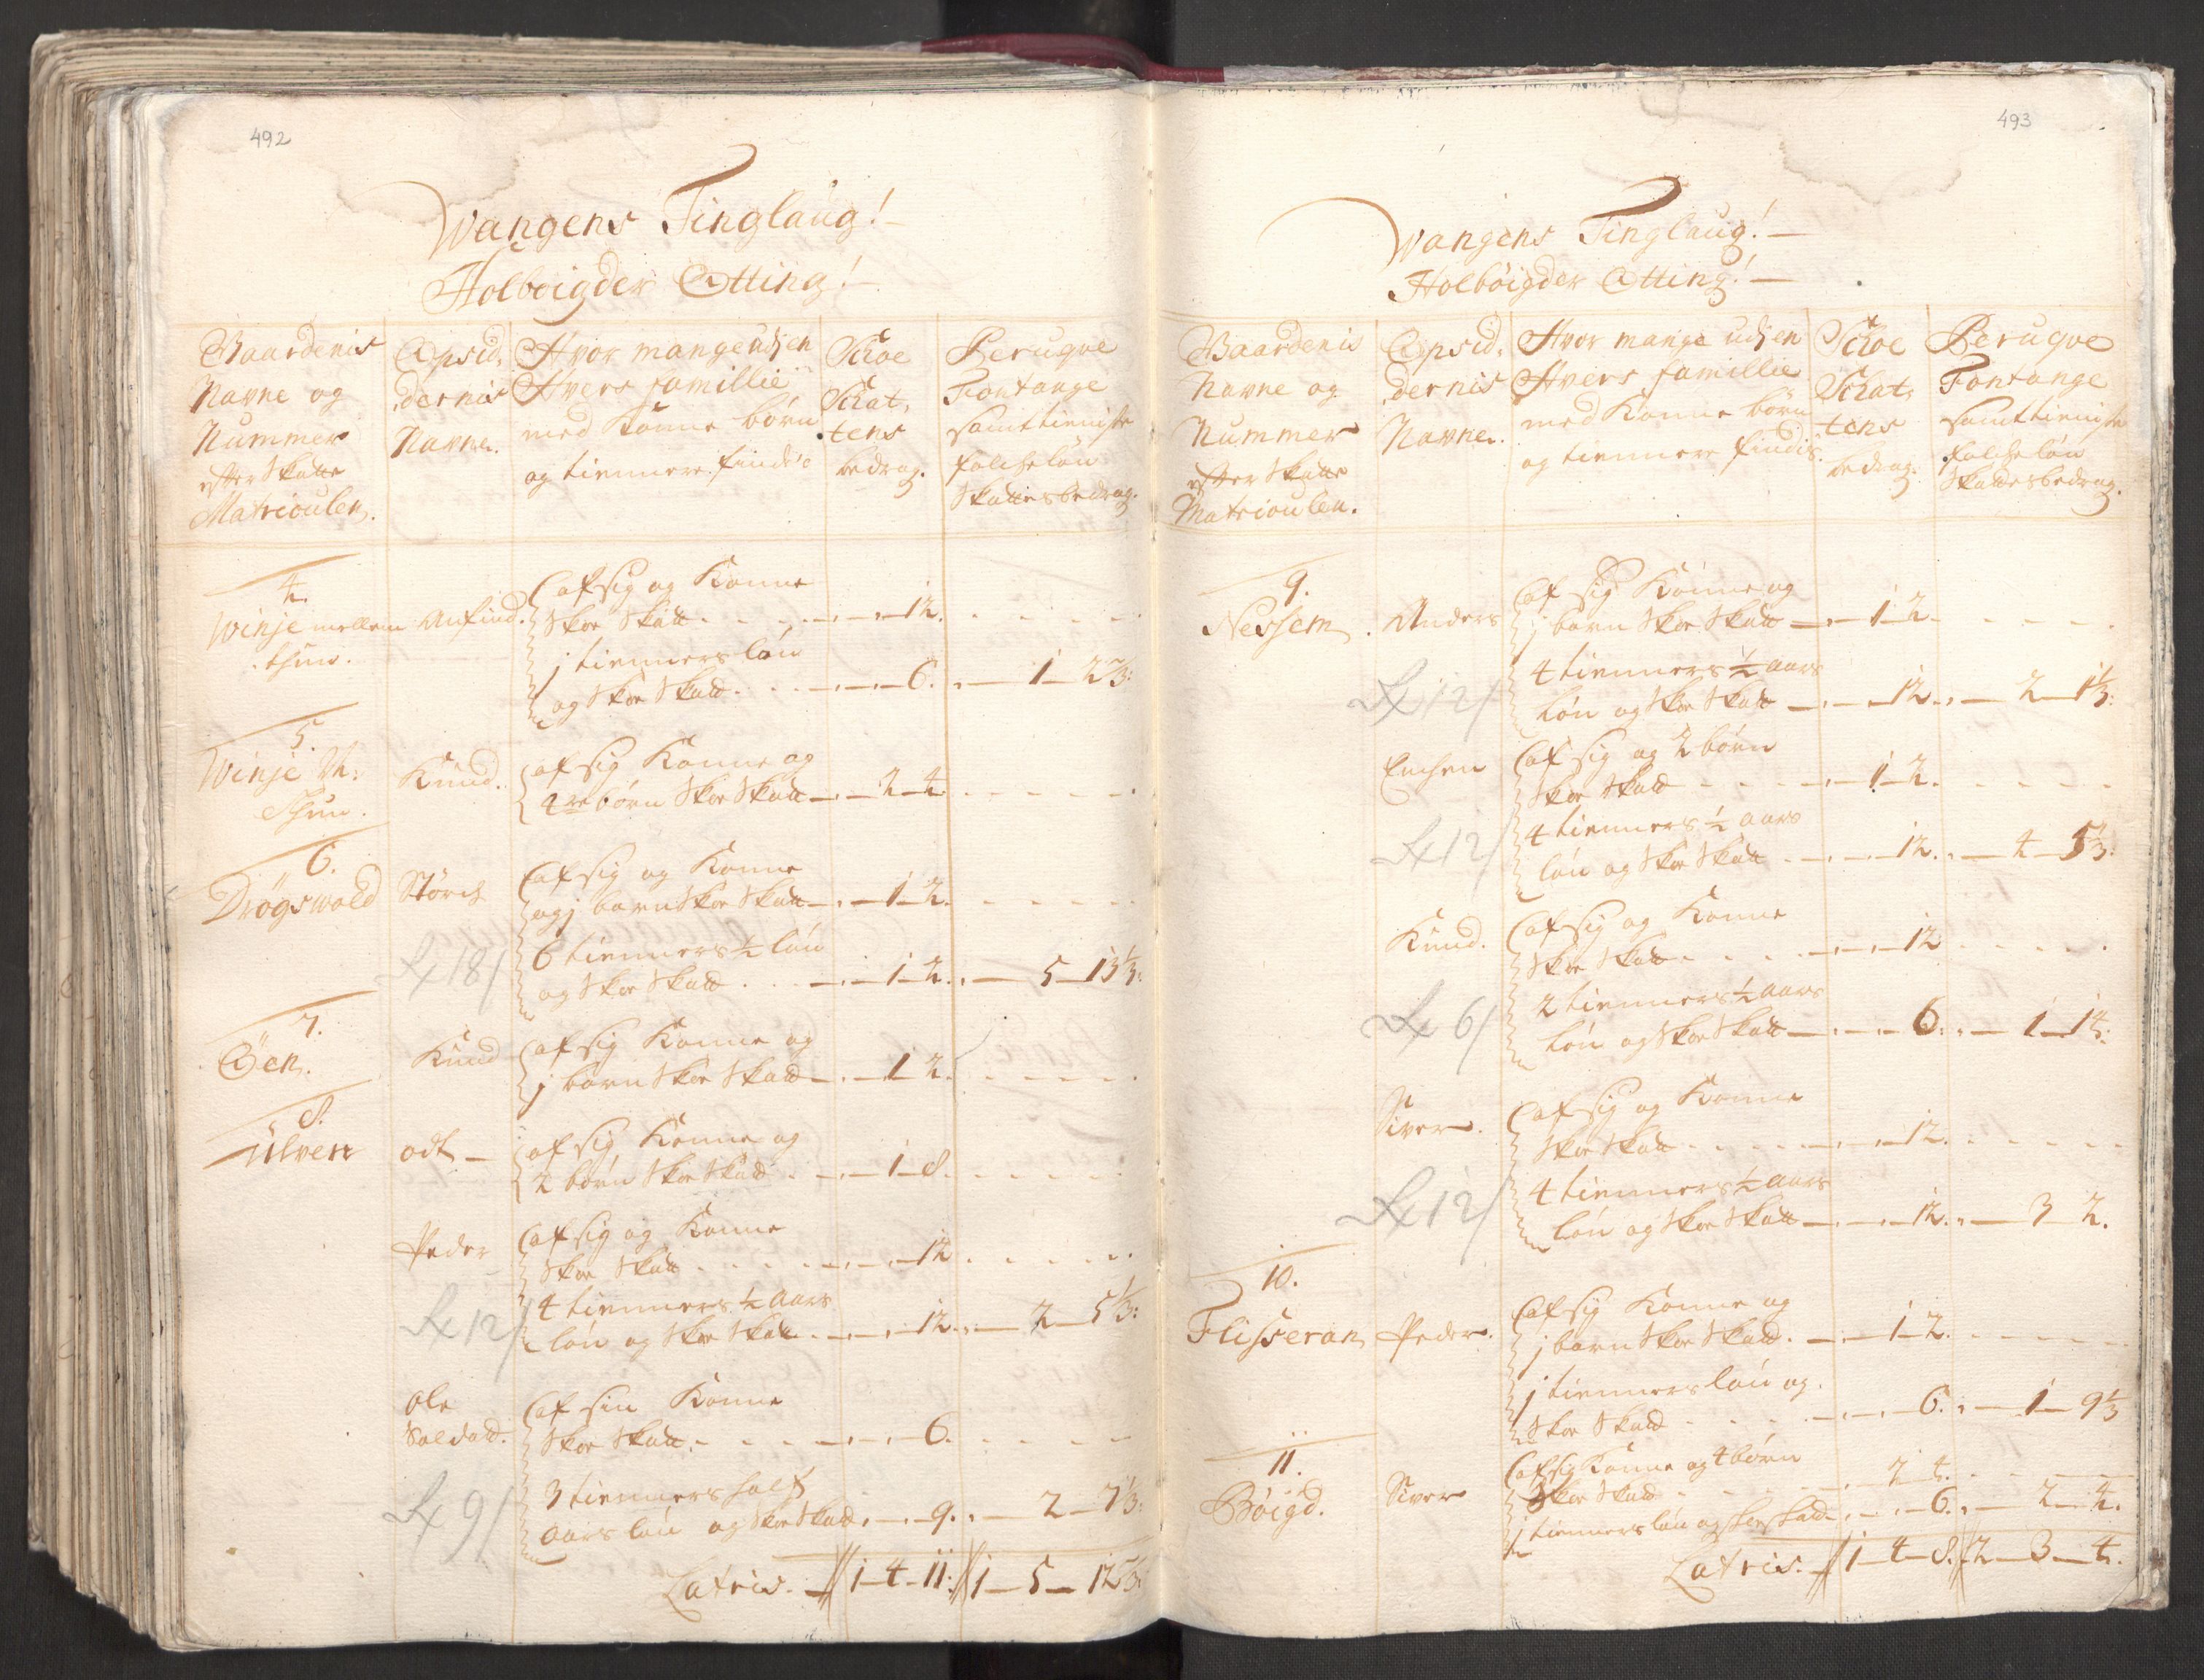 492
Wangens Tinglaug!
Holbøigder Otting!
Gaardenis
Navne og
Nummer
efter Skatte
Matriculen.
Opsid,
dernis
Navne.
Hvor mange udj en
Hvers famillie
med Konne børn
og tiennere findis
Skoe
Skat,
tens
bedrag.
Peruqve
Fontange
samt tieniste
folcheløn
Skattes bedrag.
4.
Winje mellem
thun.
Anfind.
af sig og Konne
Skoe Skatt - 12.
j tienners løn
og Skoe Skatt - 6. - 1 - 2 2/3:
5.
Winje N:
Thun.
Knud.
af sig Konne og
4re børn Skoe Skatt - 2 - 4
6.
Drøgswold
Størch
af sig og Konne
og j barn Skoe Skatt - 1 - 2.
18/
6 tienners 1/2 løn
og Skoe Skatt - 1 - 2. - 5 - 13 1/3:
7.
Øen.
Knud
af sig Konne og
j barn Skoe Skatt - 1 2.
8.
Ulven
odt
af sig Konne og
2 børn Skoe Skatt - 1 - 8.
Peder
af sig og Konne
Skoe Skatt - 12
12/
4 tienners 1/2 Aars
løn og Skoe Skatt - 12. - 2 - 5 1/3:
Ole
Soldatt.
af sin Konne
Skoe Skatt. - 6.
9/
3 tienners half
aars løn og Skoe Skatt - 9. - 2 - 7 1/3:
Latris. 1 - 4 - 11. 1 - 5 - 12 2/3:
493
Wangens Tinglaug!
Holbøigder Otting!
Gaardenis
Navne og
Nummer
efter Skatte
Matriculen.
Opsid,
dernis
Navne.
Hvor mange udj en
Hvers famillie
med Konne børn
og tiennere findis.
Skoe
Skat,
tens
bedrag.
Peruqve
Fontange
samt tieniste
folcheløn
Skattes bedrag.
9.
Nessem.
Anders
af sig Konne og
j barn Skoe Skatt - 1 2.
12/
4 tienners 1/2 aars
løn og Skoe Skatt - 12. - 2 - 1 1/3:
Enchen
af sig og 2 børn
Skoe Skatt - 1 - 2.
12/
4 tienners 1/2 aars
løn og Skoe Skatt - 12. - 4 - 5 1/3:
Knud.
af sig og Konne
Skoe Skatt - 12
6/
2 tienners 1/2 aars
løn og Skoe Skatt - 6. - 1 - 14.
Siver.
af sig og Konne
Skoe Skatt - 12.
12/
4 tienners 1/2 aars
løn og Skoe Skatt - 12. - 3 2.
10.
Flisseran
Peder.
af sig Konne og
j barn Skoe Skatt. - 1 - 2.
j tienners løn og
Skoe Skatt - 6. - 1 - 9 1/3
11.
Bøigd.
Siver
af sig Konne og 4 børn
Skoe Skatt - 2 4.
j tienners løn og skoe skatt - 6. - 2 - 4.
Latris. 1 - 4 - 8. 2 - 3 - 4.